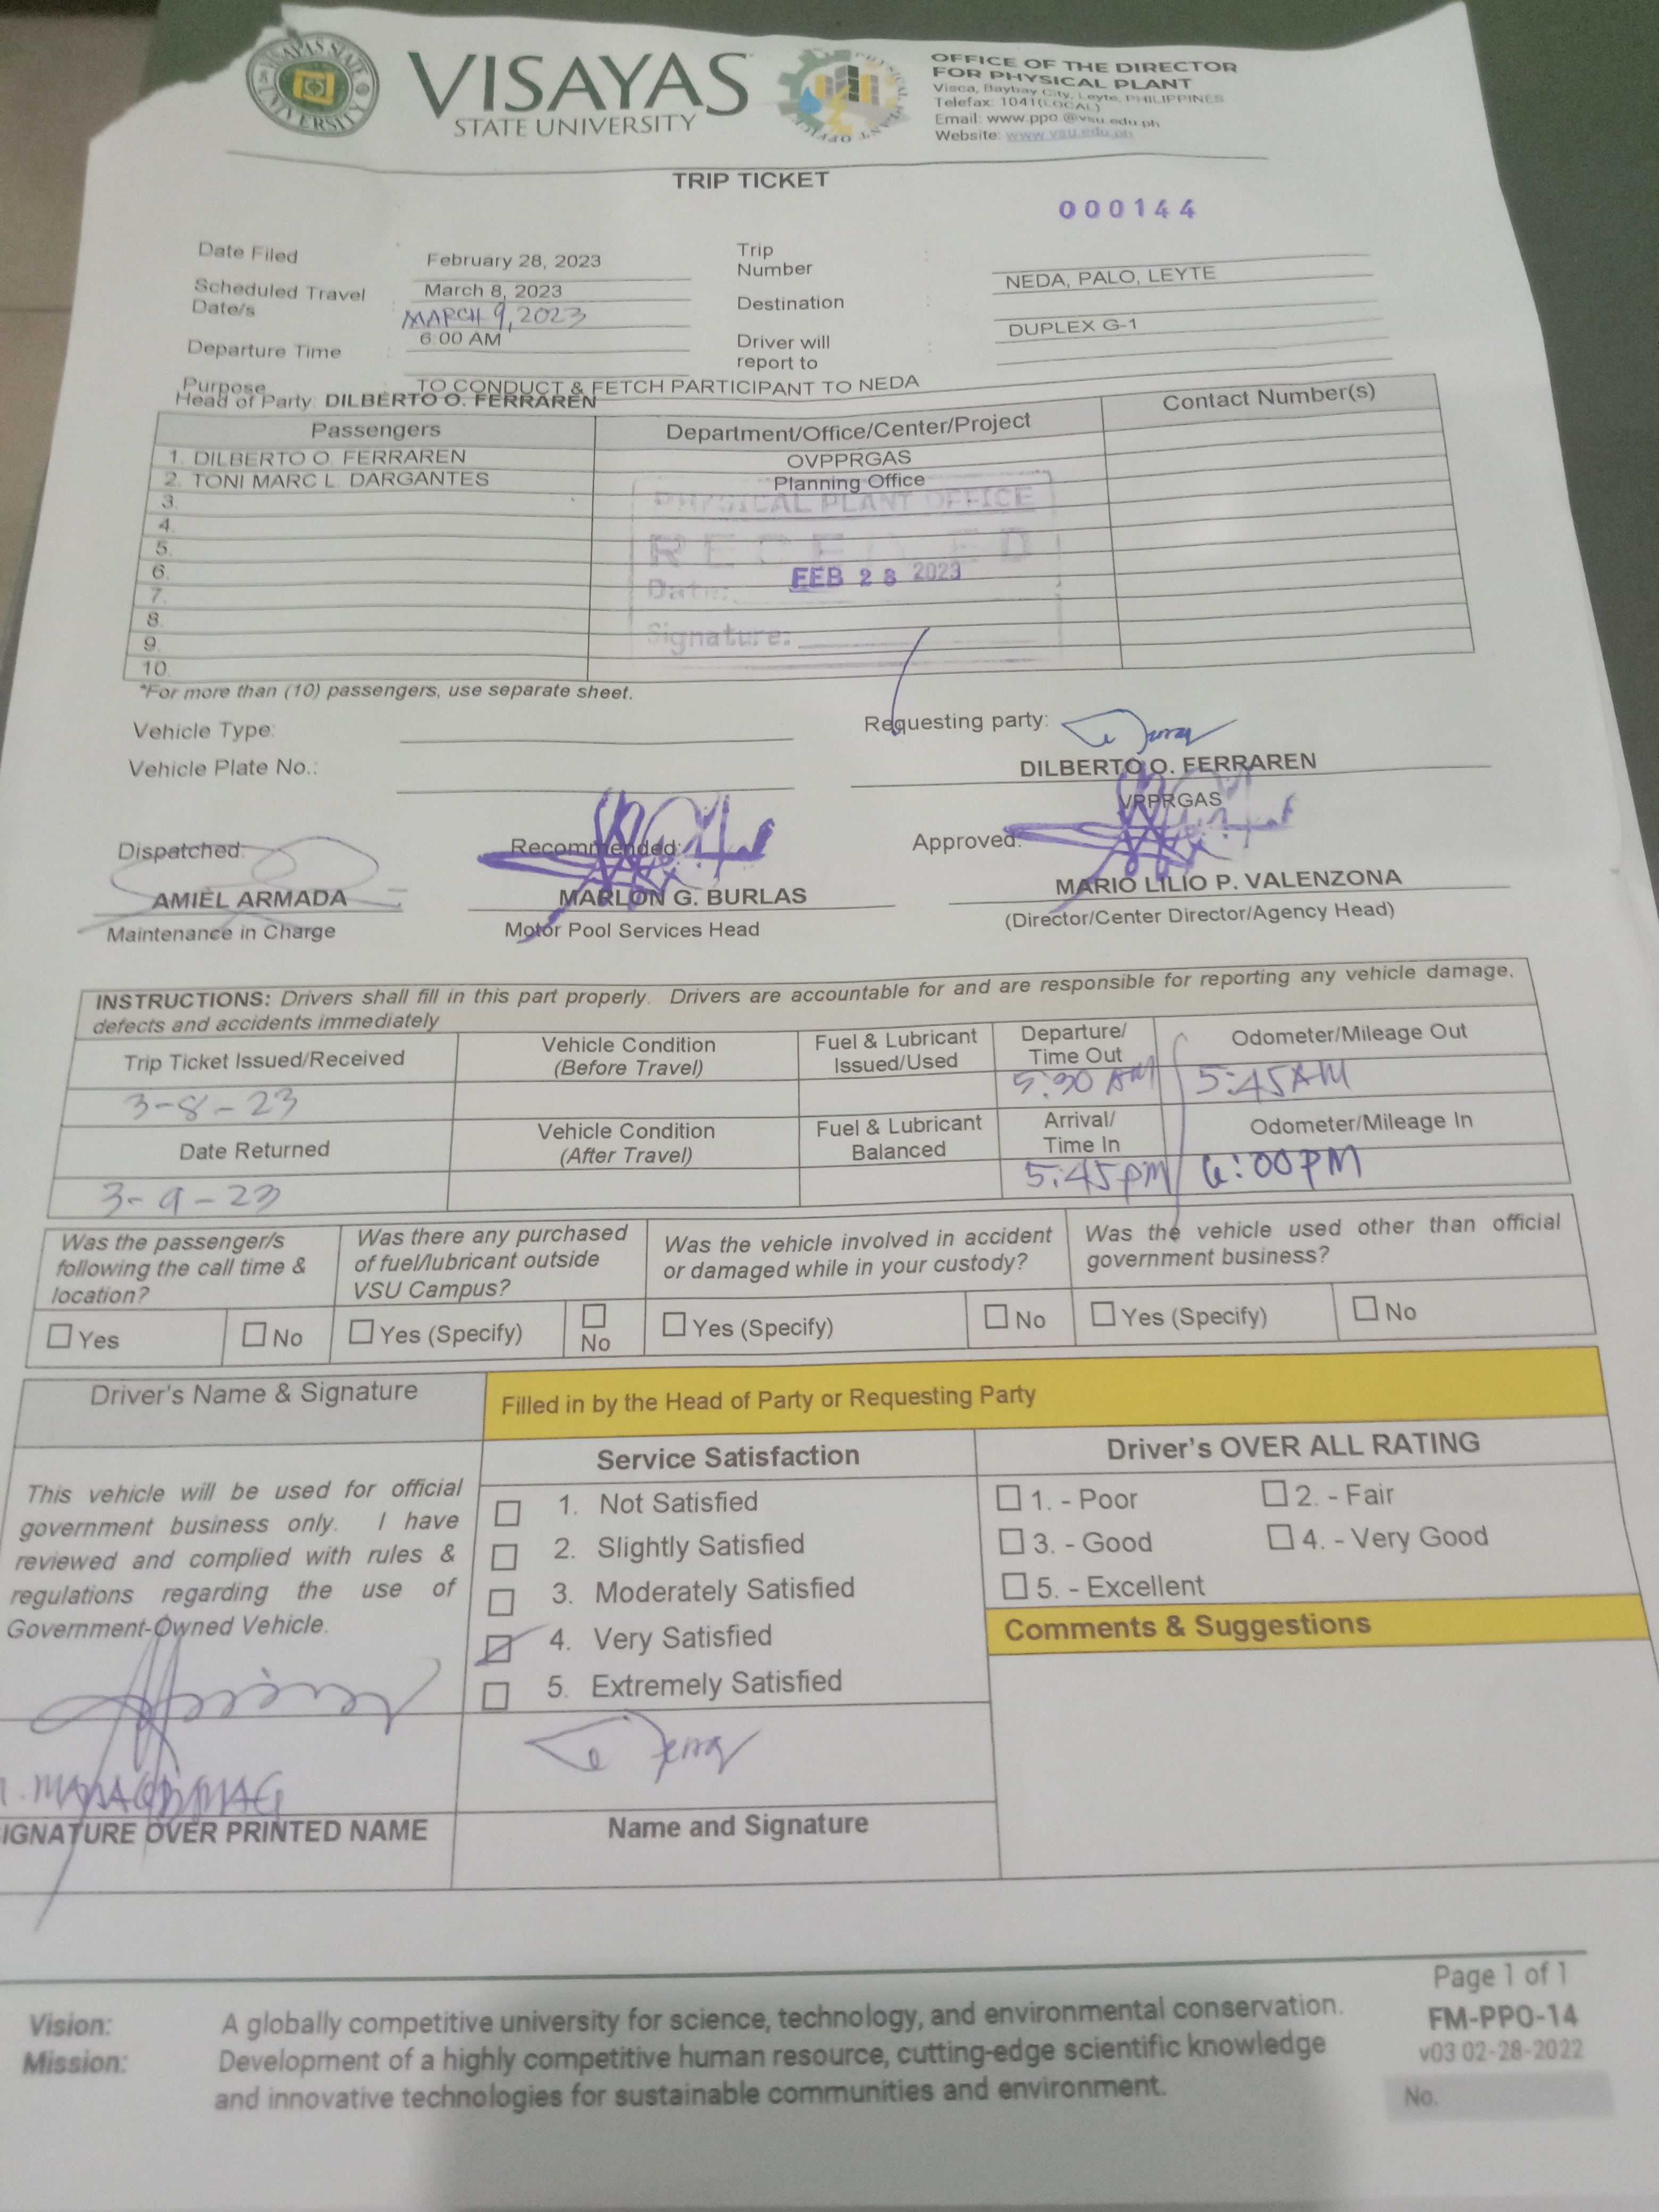 VISAYAS STATE UNIVERSITY
VISAYAS
STATE UNIVERSITY
PHYSICAL PLANT OFFICE
OFFICE OF THE DIRECTOR
FOR PHYSICAL PLANT
Visca, Baybay City, Leyte, PHILIPPINES
Telefax: 1041(LOCAL)
Email: www.ppo.@vsu.edu.ph
Website: www.vsu.edu.ph
TRIP TICKET
000144
Date Filed : February 28, 2023
Trip Number :
Scheduled Travel Date/s : March 8, 2023
MARCH 9, 2023
Destination : NEDA, PALO, LEYTE
Departure Time : 6:00 AM
Driver will report to : DUPLEX G-1
Purpose TO CONDUCT & FETCH PARTICIPANT TO NEDA
Head of Party: DILBERTO O. FERRAREN
Passengers Department/Office/Center/Project Contact Number(s)
1. DILBERTO O. FERRAREN OVPPRGAS
2. TONI MARC L. DARGANTES Planning Office
3.
4.
5.
6.
7.
8.
9.
10.
PHYSICAL PLANT OFFICE
RECEIVED
Date: FEB 28 2023
Signature:
*For more than (10) passengers, use separate sheet.
Vehicle Type:
Requesting party:
Vehicle Plate No.:
DILBERTO O. FERRAREN
VPPRGAS
Dispatched: Recommended: Approved:
AMIEL ARMADA MARLON G. BURLAS MARIO LILIO P. VALENZONA
Maintenance in Charge Motor Pool Services Head (Director/Center Director/Agency Head)
INSTRUCTIONS: Drivers shall fill in this part properly. Drivers are accountable for and are responsible for reporting any vehicle damage,
defects and accidents immediately
Trip Ticket Issued/Received Vehicle Condition (Before Travel) Fuel & Lubricant Issued/Used Departure/ Time Out Odometer/Mileage Out
3-8-23 5:30 AM 5:45AM
Date Returned Vehicle Condition (After Travel) Fuel & Lubricant Balanced Arrival/ Time In Odometer/Mileage In
3-9-23 5:45PM 6:00PM
Was the passenger/s following the call time & location?
Was there any purchased of fuel/lubricant outside VSU Campus?
Was the vehicle involved in accident or damaged while in your custody?
Was the vehicle used other than official government business?
Yes No Yes (Specify) No Yes (Specify) No Yes (Specify) No
Driver's Name & Signature Filled in by the Head of Party or Requesting Party
This vehicle will be used for official
government business only. I have
reviewed and complied with rules &
regulations regarding the use of
Government-Owned Vehicle.
Service Satisfaction
1. Not Satisfied
2. Slightly Satisfied
3. Moderately Satisfied
4. Very Satisfied
5. Extremely Satisfied
Driver's OVER ALL RATING
1. - Poor 2. - Fair
3. - Good 4. - Very Good
5. - Excellent
Comments & Suggestions
IGNATURE OVER PRINTED NAME Name and Signature
Page 1 of 1
FM-PPO-14
v03 02-28-2022
No.
Vision: A globally competitive university for science, technology, and environmental conservation.
Mission: Development of a highly competitive human resource, cutting-edge scientific knowledge
and innovative technologies for sustainable communities and environment.